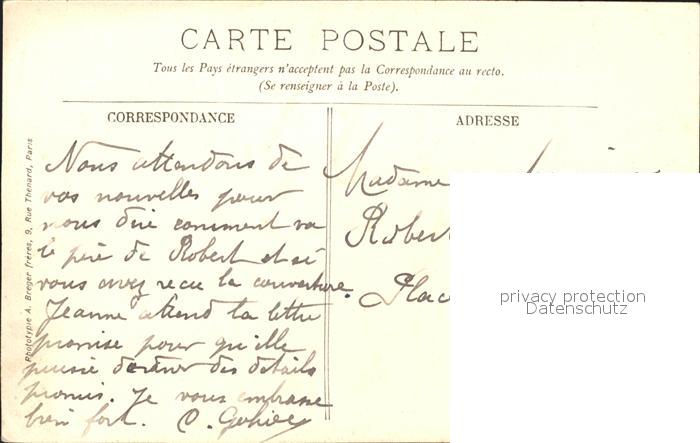 CARTE POSTALE
Tous les Pays étrangers n'acceptent pas la Correspondance au recto.
(Se renseigner à la Poste).
CORRESPONDANCE
ADRESSE
Phototypie A. Breger frères, 9, Rue Thénard, Paris
Nous attendons de
vos nouvelles pour
nous dire comment va
le père de Robert et si
vous avez recu la couverture.
Jeanne attend ta lettre
promise pour qu'elle
puisse des details
promis. Je vous embrasse
bien fort.
Madame
Robert
Plac
privacy protection
Datenschutz